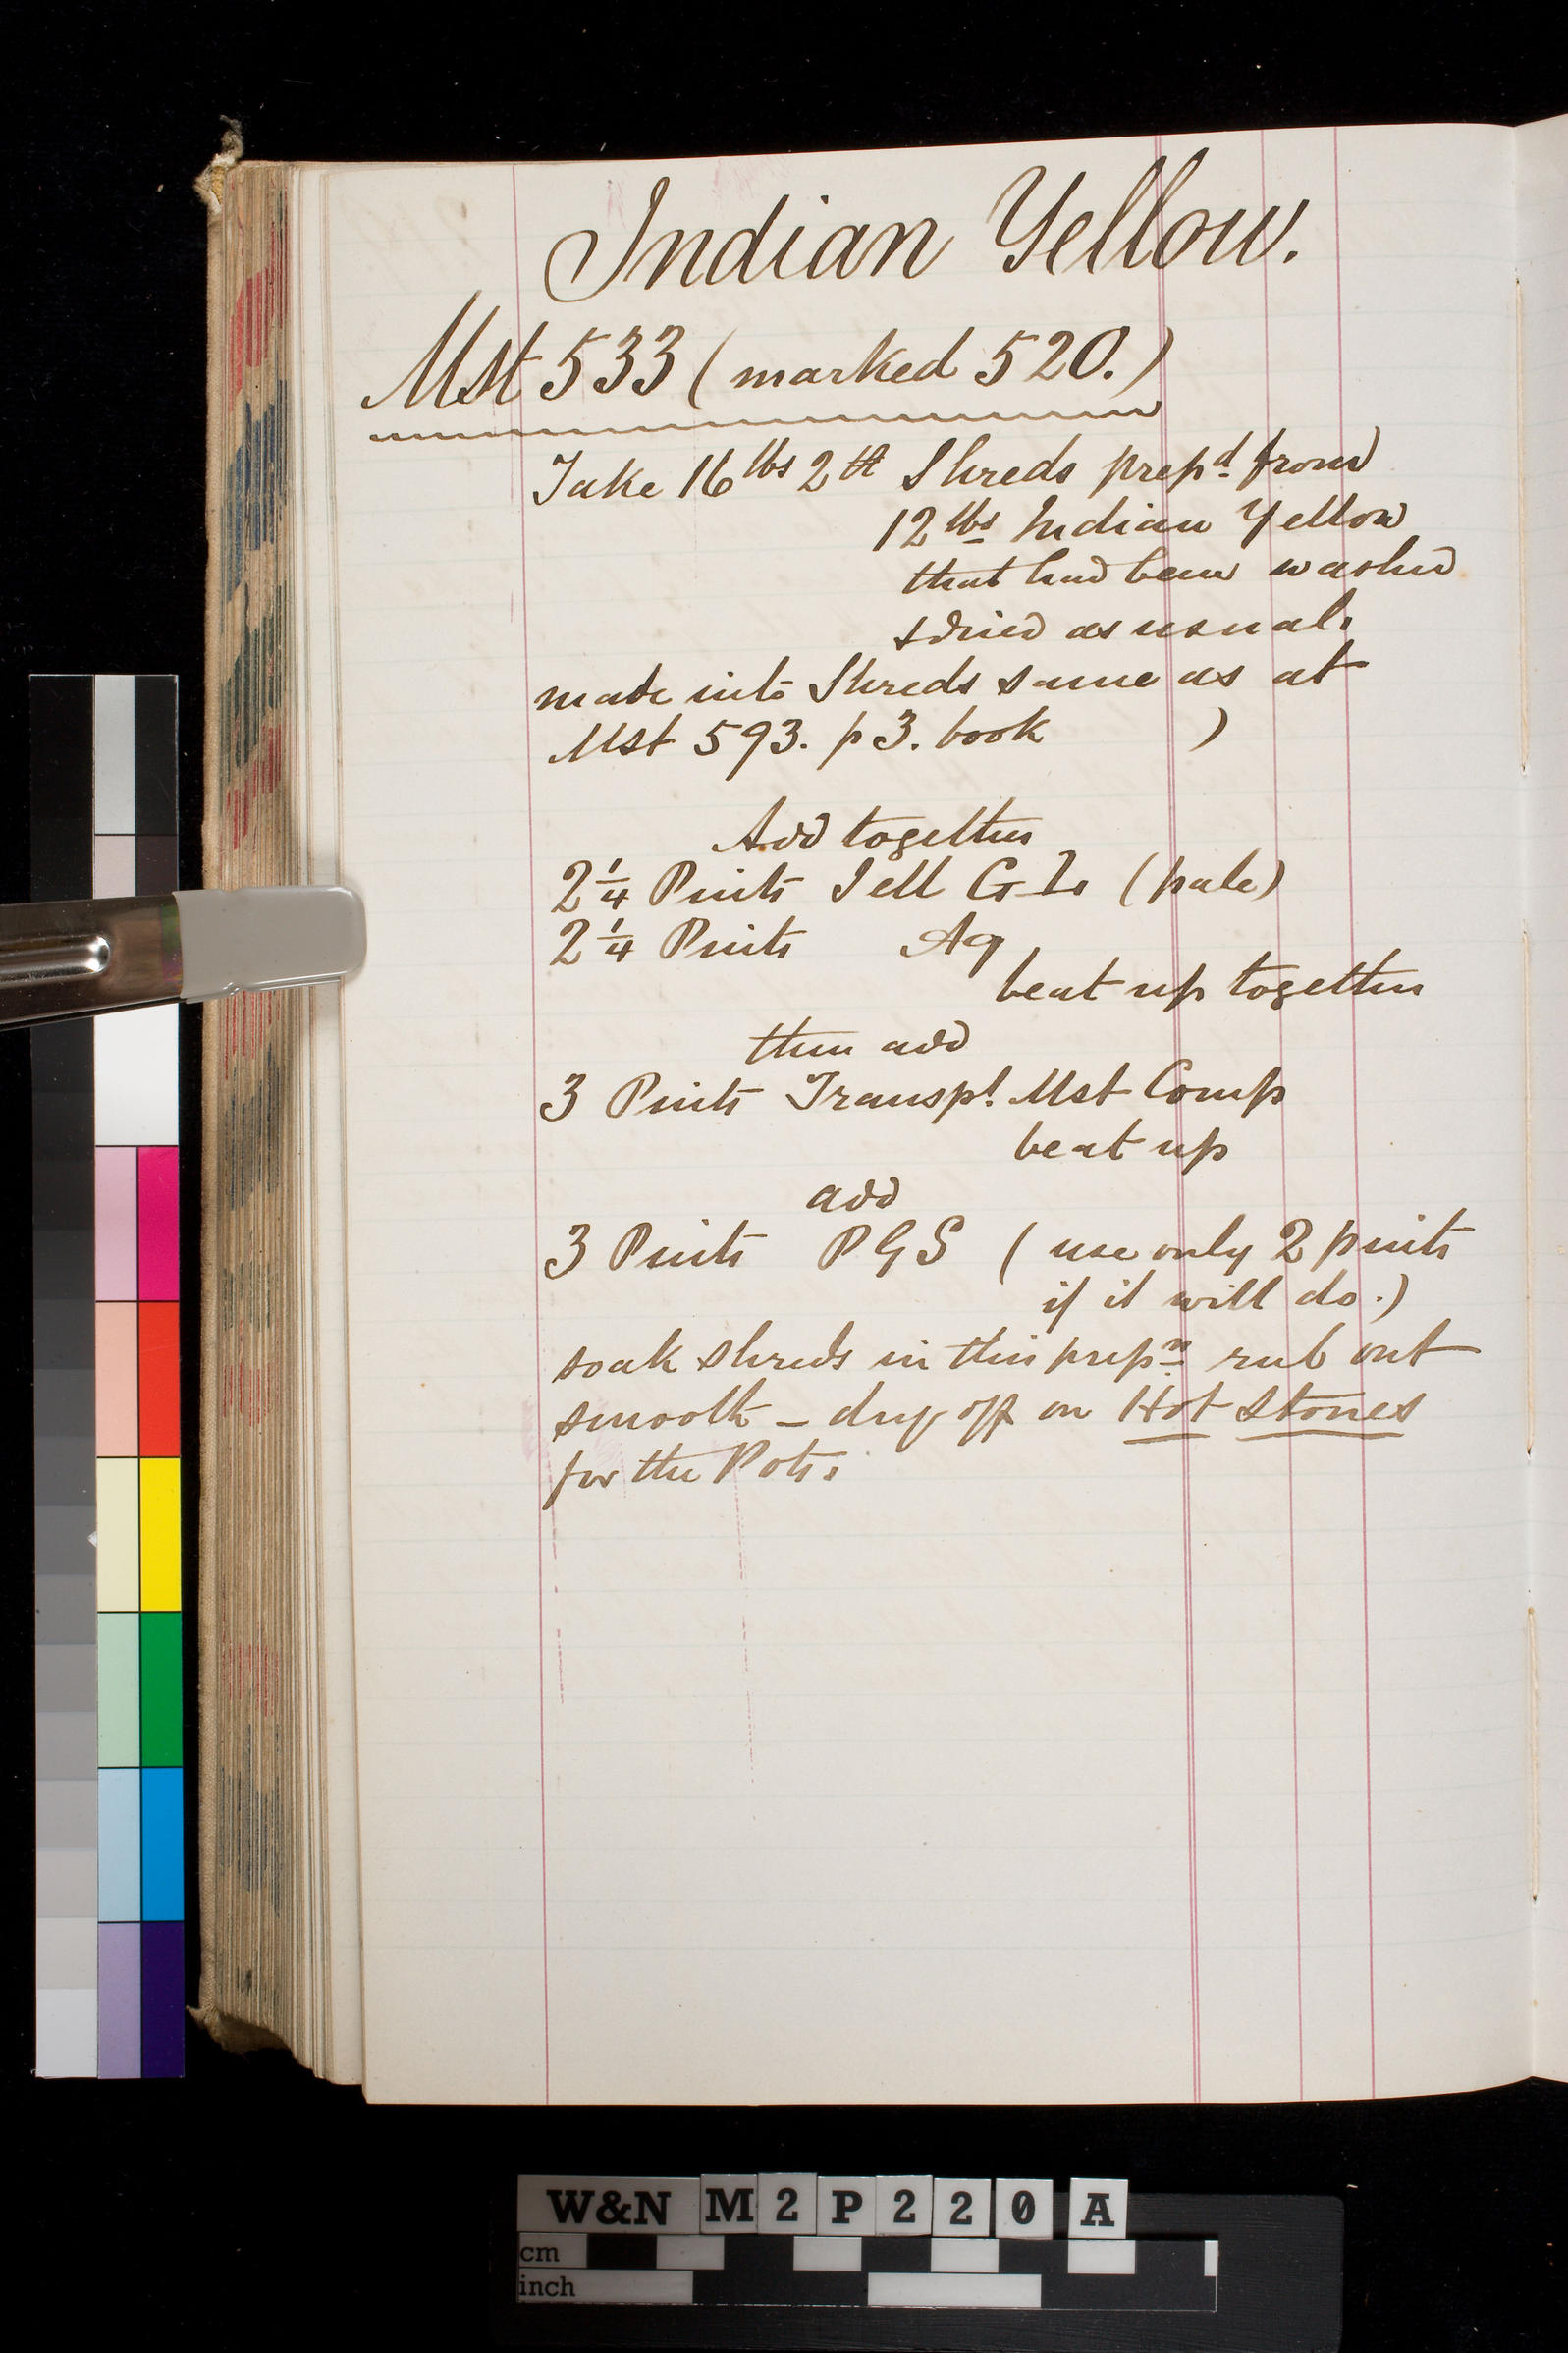 Indian Yellow.
Mst 533 (marked 520.)
Take 16 lbs 2 Shreds prepd. from
12 lbs Indian Yellow
that had been washed
& dried as usual.
made into Shreds same as at
Mst 593. p 3. book )
Add together
2 1/4 Pints Jell G (pale)
2 1/4 Pints Aq
beat up together
then add
3 Pints Transpt. Mst Comp
beat up
add
3 Pints PGS (use only 2 pints
if it will do.)
soak shreds in this prepn. rub out
smooth - dry off on Hot Stones
for the Pots.
W&N M2P220A
cm
inch